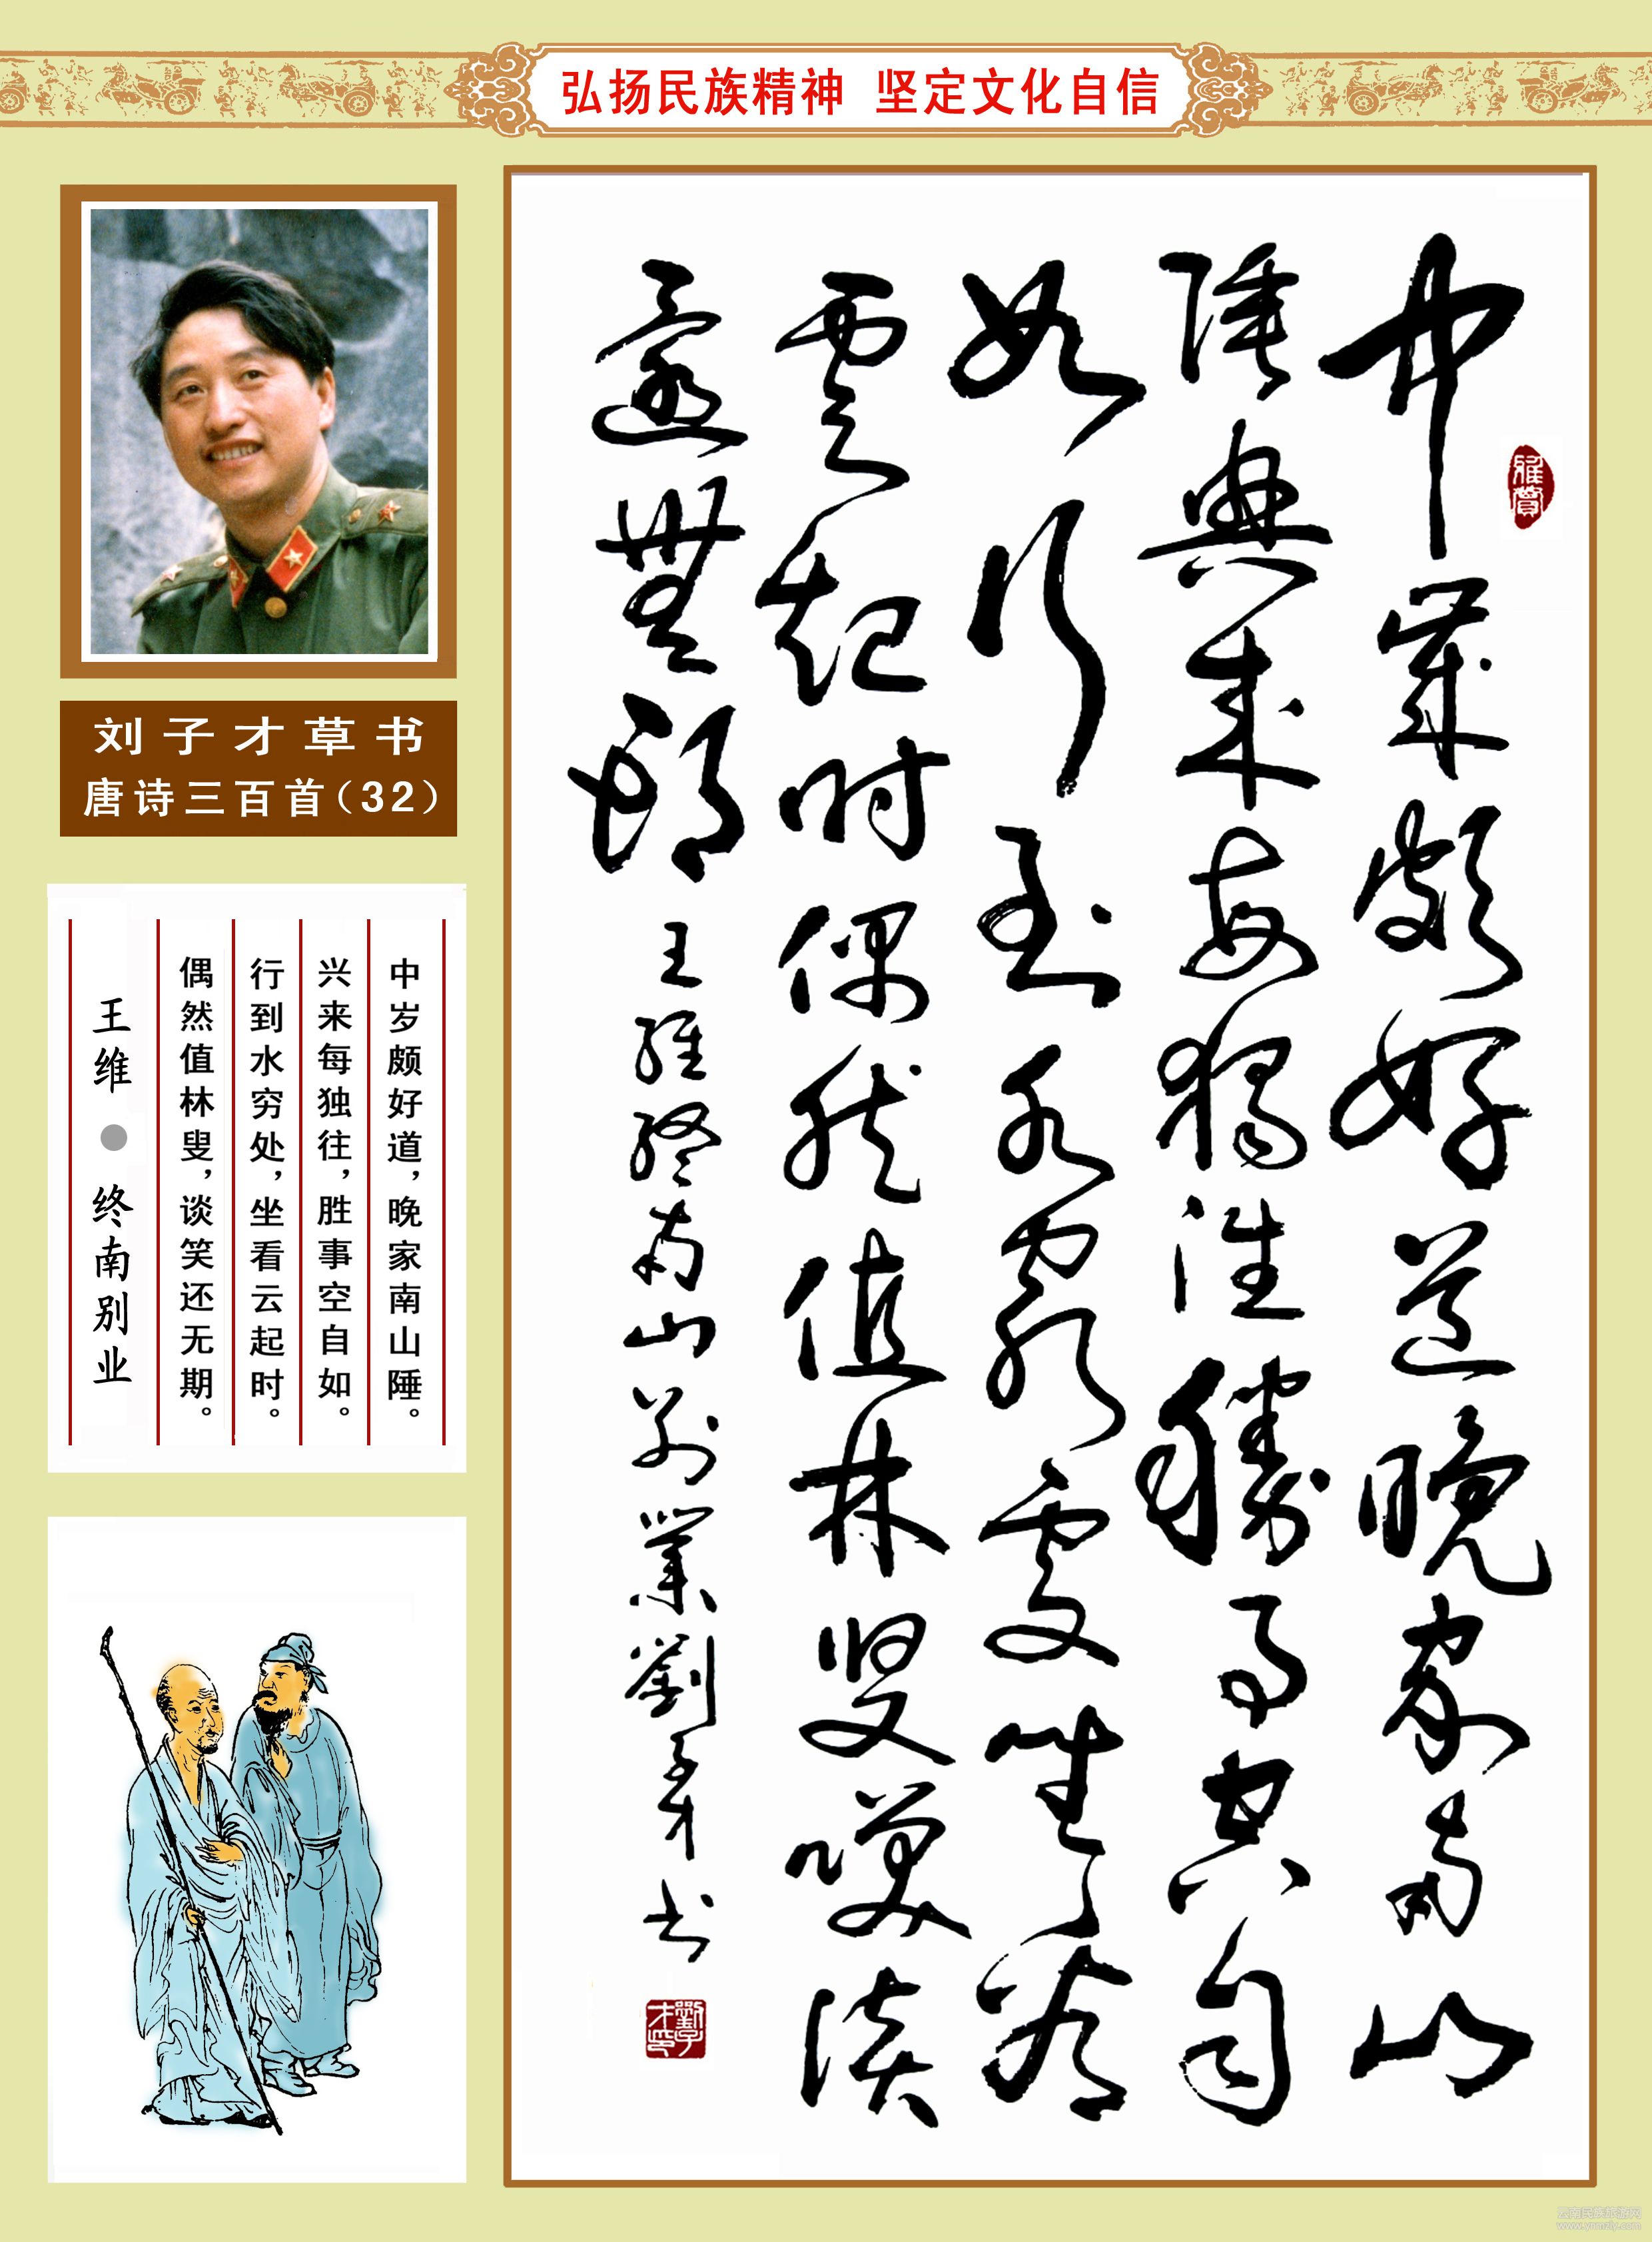 弘扬民族精神 坚定文化自信
刘子才草书
唐诗三百首（32）
中岁颇好道，晚家南山陲。
兴来每独往，胜事空自如。
行到水穷处，坐看云起时。
偶然值林叟，谈笑还无期。
王维●终南别业
中歲頗好道晚家南山
陲興来每獨往勝事空自
如行到水窮處坐看
雲起时偶然值林叟咲談
還無期 王維終南山别業劉子才书
雅賞
劉子才印